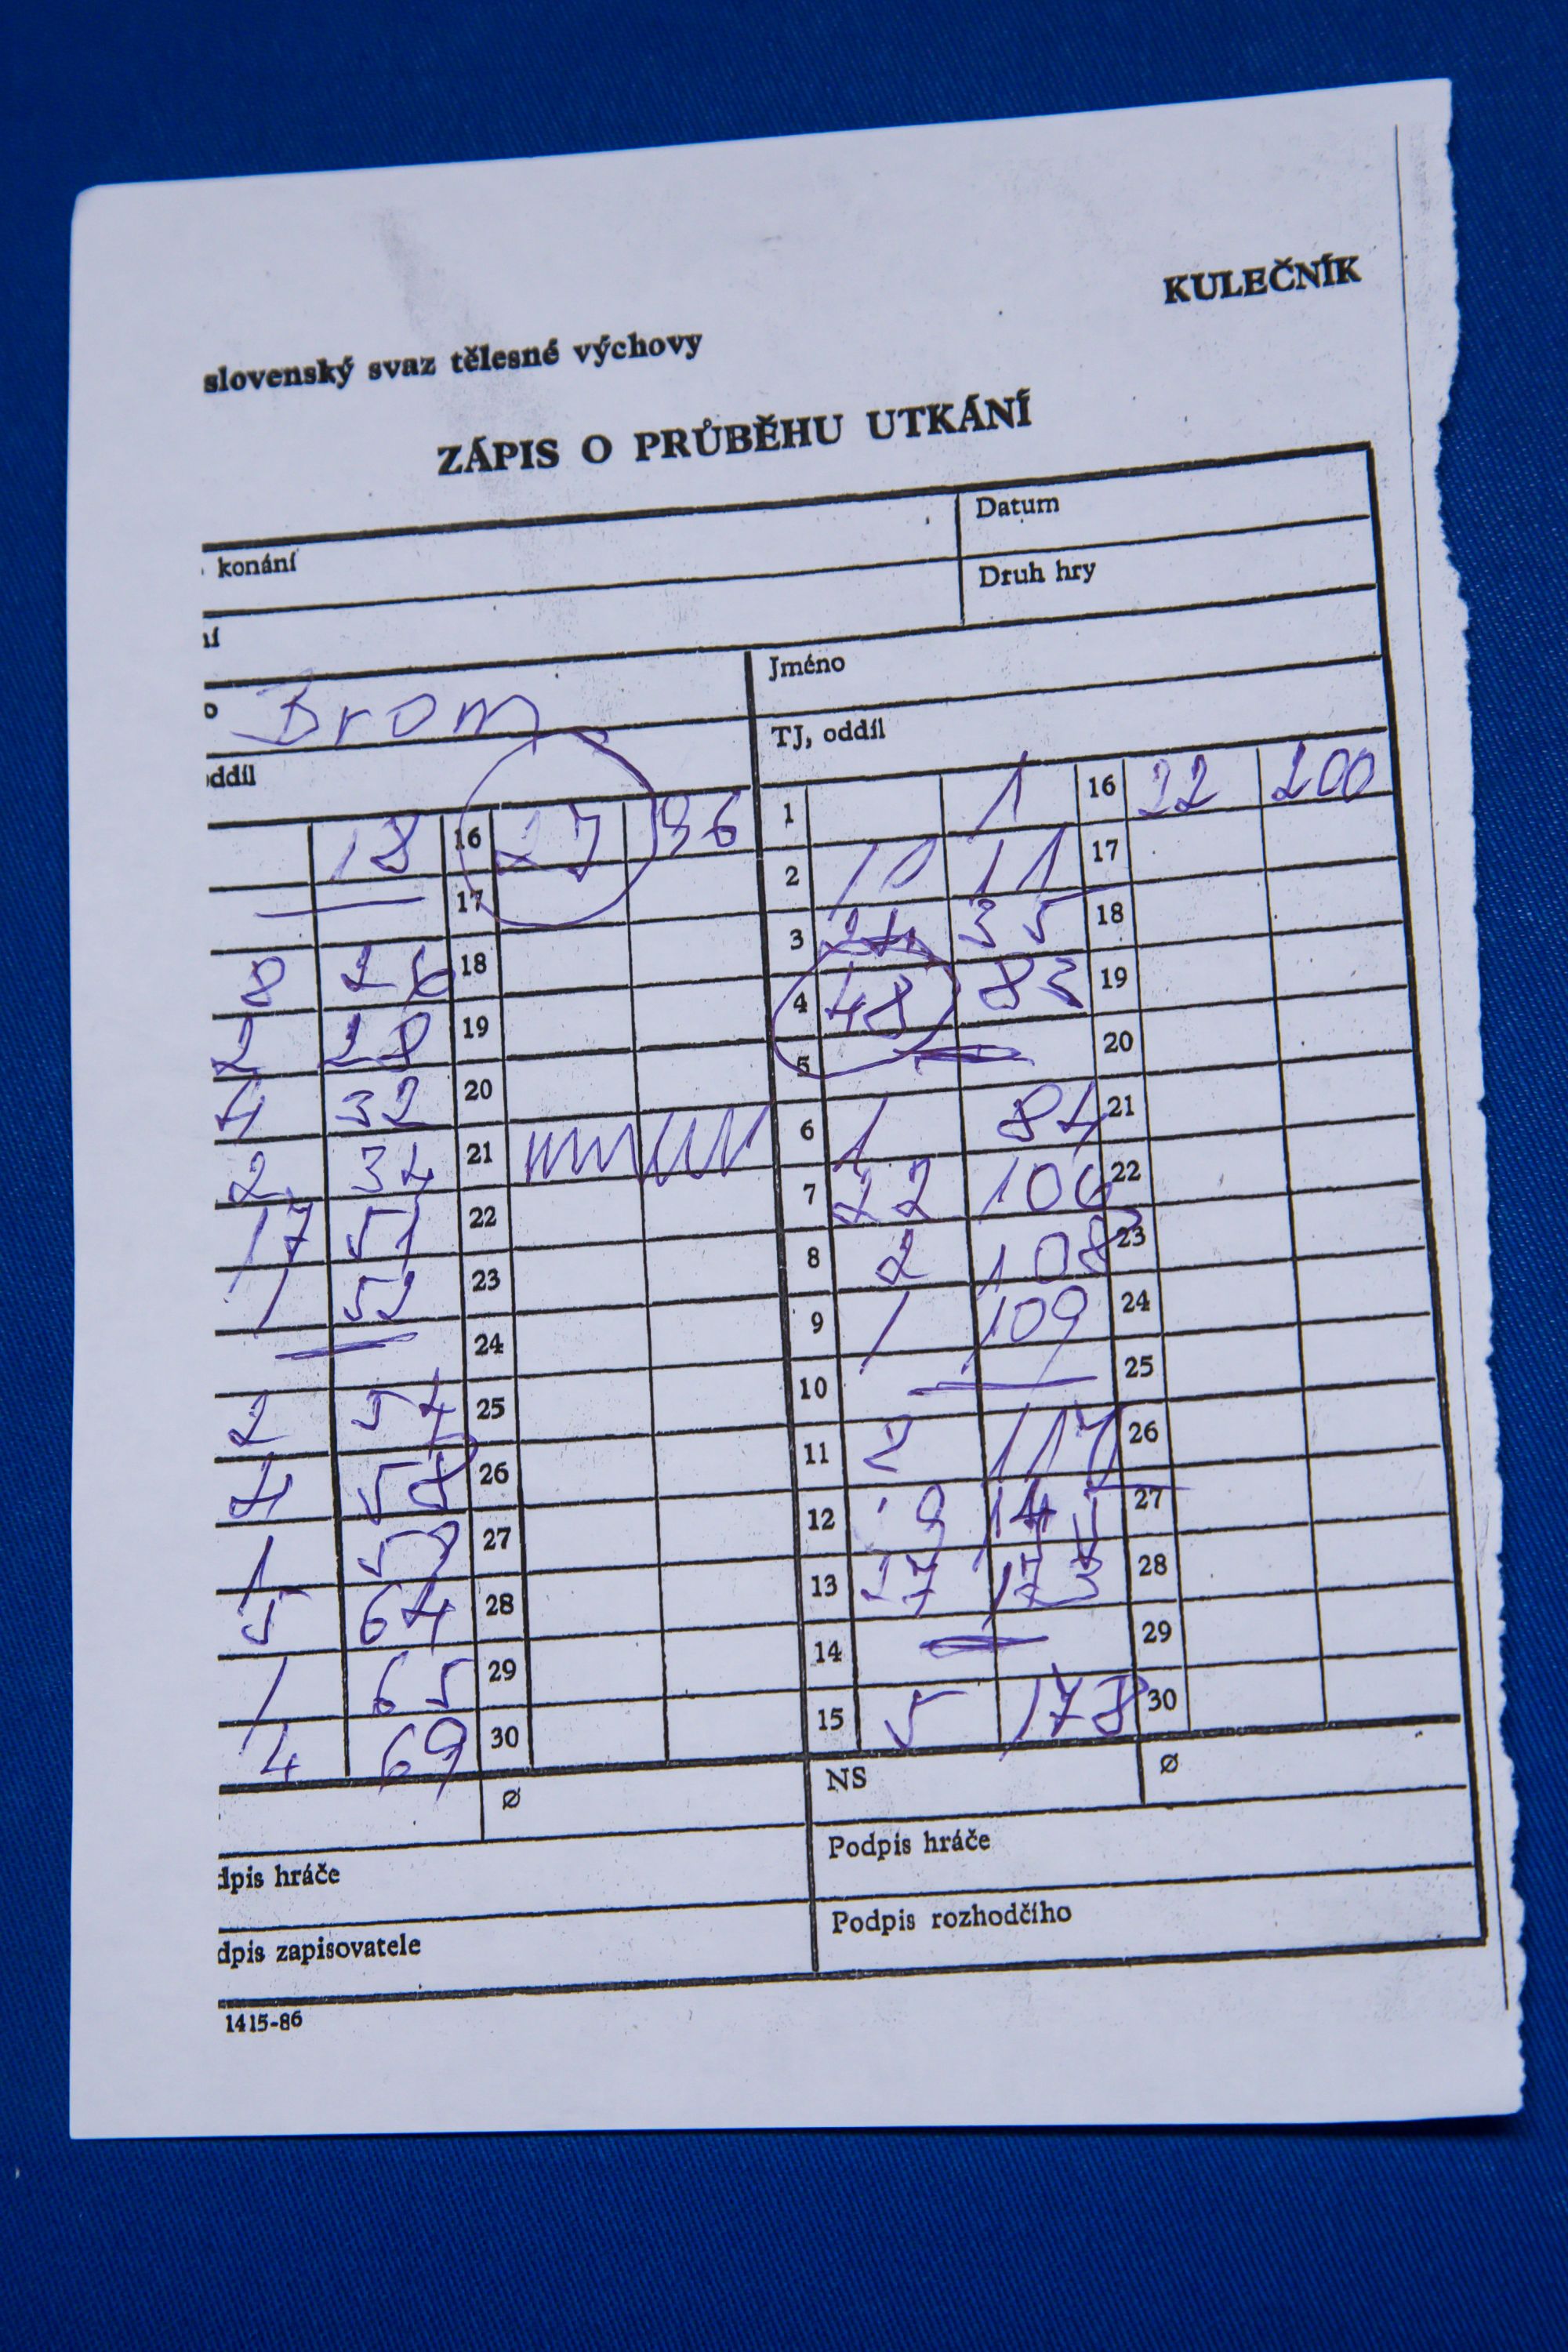 KULEČNÍK
slovenský svaz tělesné výchovy
ZÁPIS O PRŮBĚHU UTKÁNÍ
konání Datum
ní Druh hry
o Brom Jméno
oddíl TJ, oddíl
18 16 27 96 1 1 16 22 200
17 2 10 11 17
8 26 18 3 24 35 18
2 28 19 4 48 83 19
4 32 20 5 20
2 34 21 6 1 84 21
17 51 22 7 22 106 22
1 52 23 8 2 108 23
24 9 1 109 24
2 54 25 10 25
4 58 26 11 2 26
1 59 27 12 9 27
5 64 28 13 27 173 28
1 65 29 14 29
4 69 30 15 5 178 30
Ø NS Ø
dpis hráče Podpis hráče
dpis zapisovatele Podpis rozhodčího
1415-86